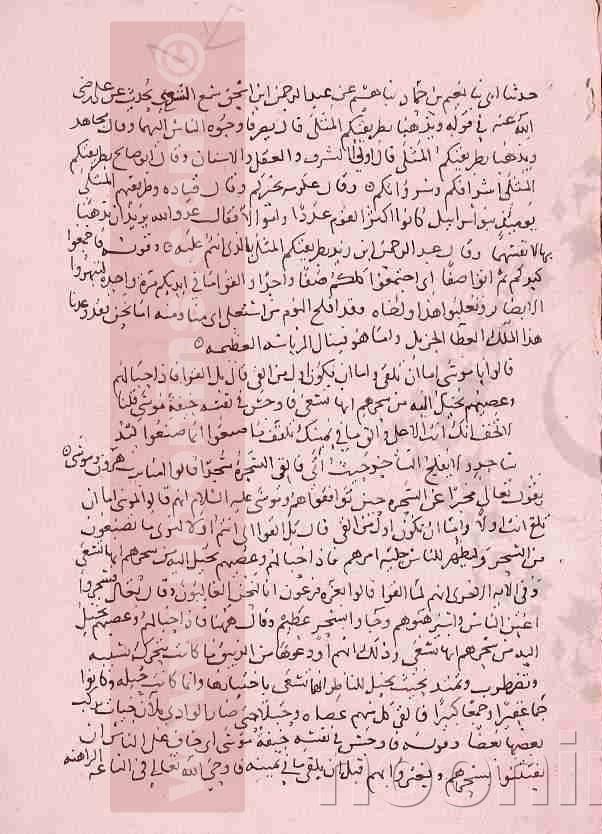 حدثنا ابي ثنا نعيم بن حماد ثنا هشيم عن عبد الرحمن ابن اسحق سمع الشعبي يحدث عن علي رضي
الله عنه في قوله ويذهبا بطريقتكم المثلى قال يصرفا وجوه الناس اليهما وقال مجاهد
ويذهبا بطريقتكم المثلى قال اولي الشرف والعقل والاسنان وقال ابو صالح بطريقتكم
المثلى اشرافكم وسرواتكم وقال عكرمه بخيركم وقال قتاده وطريقتهم المثلى
يوميذ بنو اسرايل كانوا اكثر القوم عددا واموالا فقال عدو الله يريدان ان يذهبا
بها لانفسهما وقال عبد الرحمن ابن زيد بطريقتكم المثلى بالذي انتم عليه وقوله فاجمعوا
كيدكم ثم ائتوا صفا اي اجتمعوا كلكم صفا واحدا والقوا ما في ايديكم مرة واحدة لتبهروا
الابصار وتغلبوا هذا واخاه وقد افلح اليوم من استعلى اي منا ومنه اما نحن فقد وعدنا
هذا الملك العطا الجزيل واما هو فينال الرياسه العظيمه
قالوا يا موسى اما ان تلقي واما ان نكون اول من القى قال بل القوا فاذا حبالهم
وعصيهم يخيل اليه من سحرهم انها تسعى فاوجس في نفسه خيفة موسى قلنا
لا تخف انك انت الاعلى والق ما في يمينك تلقف ما صنعوا انما صنعوا كيد
ساحر ولا يفلح الساحر حيث اتى فالقي السحرة سجدا قالوا امنا برب هرون وموسى
يقول تعالى مخبرا عن السحره حين توافقوا هم وموسى عليه السلام انهم قالوا لموسى اما ان
تلقي انت اولا واما ان نكون اول من القى قال بل القوا اي انتم اولا لنرى ما تصنعون
من السحر وليظهر للناس جلية امرهم فاذا حبالهم وعصيهم يخيل اليه من سحرهم انها تسعى
وفي الايه الاخرى انهم لما القوا قالوا بعزة فرعون انا لنحن الغالبون وقال تعالى سحروا
اعين الناس واسترهبوهم وجاوا بسحر عظيم وقال ههنا فاذا حبالهم وعصيهم يخيل
اليه من سحرهم انها تسعى وذلك انهم اودعوها من الزيبق ما كانت تتحرك بسببه
وتضطرب وتميد بحيث يخيل للناظر انها تسعى باختيارها وانما كانت حيله وكانوا
جما غفيرا وجمعا كبيرا فالقى كل منهم عصا وحبلا حتى صار الوادي ملآن حيات يركب
بعضها بعضا وقوله فاوجس في نفسه خيفة موسى اي خاف على الناس ان
يفتتنوا بسحرهم ويغتروا بهم قبل ان يلقي ما في يمينه فاوحى الله تعالى اليه في الساعه الراهنه